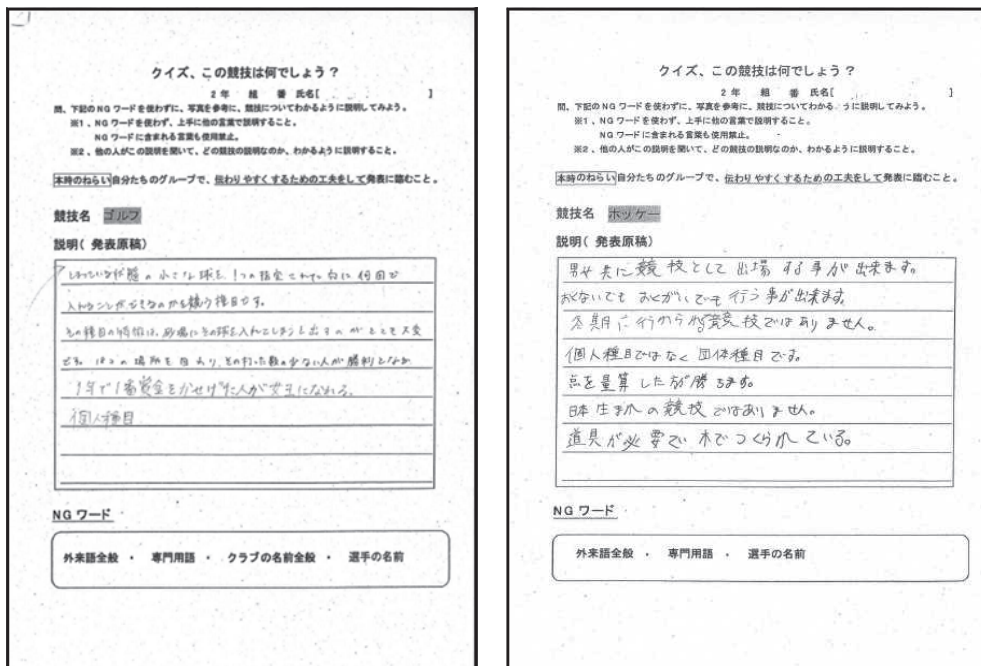 クイズ、この競技は何でしょう？
2年 組 番 氏名[ ]
問、下記のNGワードを使わずに、写真を参考に、競技についてわかるように説明してみよう。
※1、NGワードを使わず、上手に他の言葉で説明すること。
NGワードに含まれる言葉も使用禁止。
※2、他の人がこの説明を聞いて、どの競技の説明なのか、わかるように説明すること。
本時のねらい 自分たちのグループで、伝わりやすくするための工夫をして発表に臨むこと。
競技名 ゴルフ
説明(発表原稿)
小さな球を、1つの指定された穴に何回で
入れることができるのかを競う種目です。
その種目の特徴は、砂場にその球を入れてしまうと出すのがとても大変
です。18つの場所を回り、その打った数の少ない人が勝利となる
1年で1番賞金をかせげた人が女王になれる。
個人種目
NGワード
外来語全般 ・ 専門用語 ・ クラブの名前全般 ・ 選手の名前
クイズ、この競技は何でしょう？
2年 組 番 氏名[ ]
問、下記のNGワードを使わずに、写真を参考に、競技についてわかる うに説明してみよう。
※1、NGワードを使わず、上手に他の言葉で説明すること。
NGワードに含まれる言葉も使用禁止。
※2、他の人がこの説明を聞いて、どの競技の説明なのか、わかるように説明すること。
本時のねらい 自分たちのグループで、伝わりやすくするための工夫をして発表に臨むこと。
競技名 ホッケー
説明(発表原稿)
男女共に競技として出場する事が出来ます。
おくないでもおくがいでも行う事が出来ます。
冬期に行われる競技ではありません。
個人種目ではなく団体種目です。
点を量算した方が勝ちます。
日本生まれの競技ではありません。
道具が必要で木でつくられている。
NGワード
外来語全般 ・ 専門用語 ・ 選手の名前